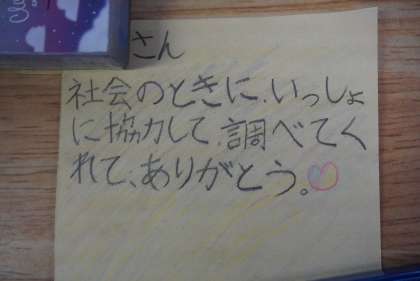 さん
社会のときに、いっしょ
に協力して、調べてく
れて、ありがとう。